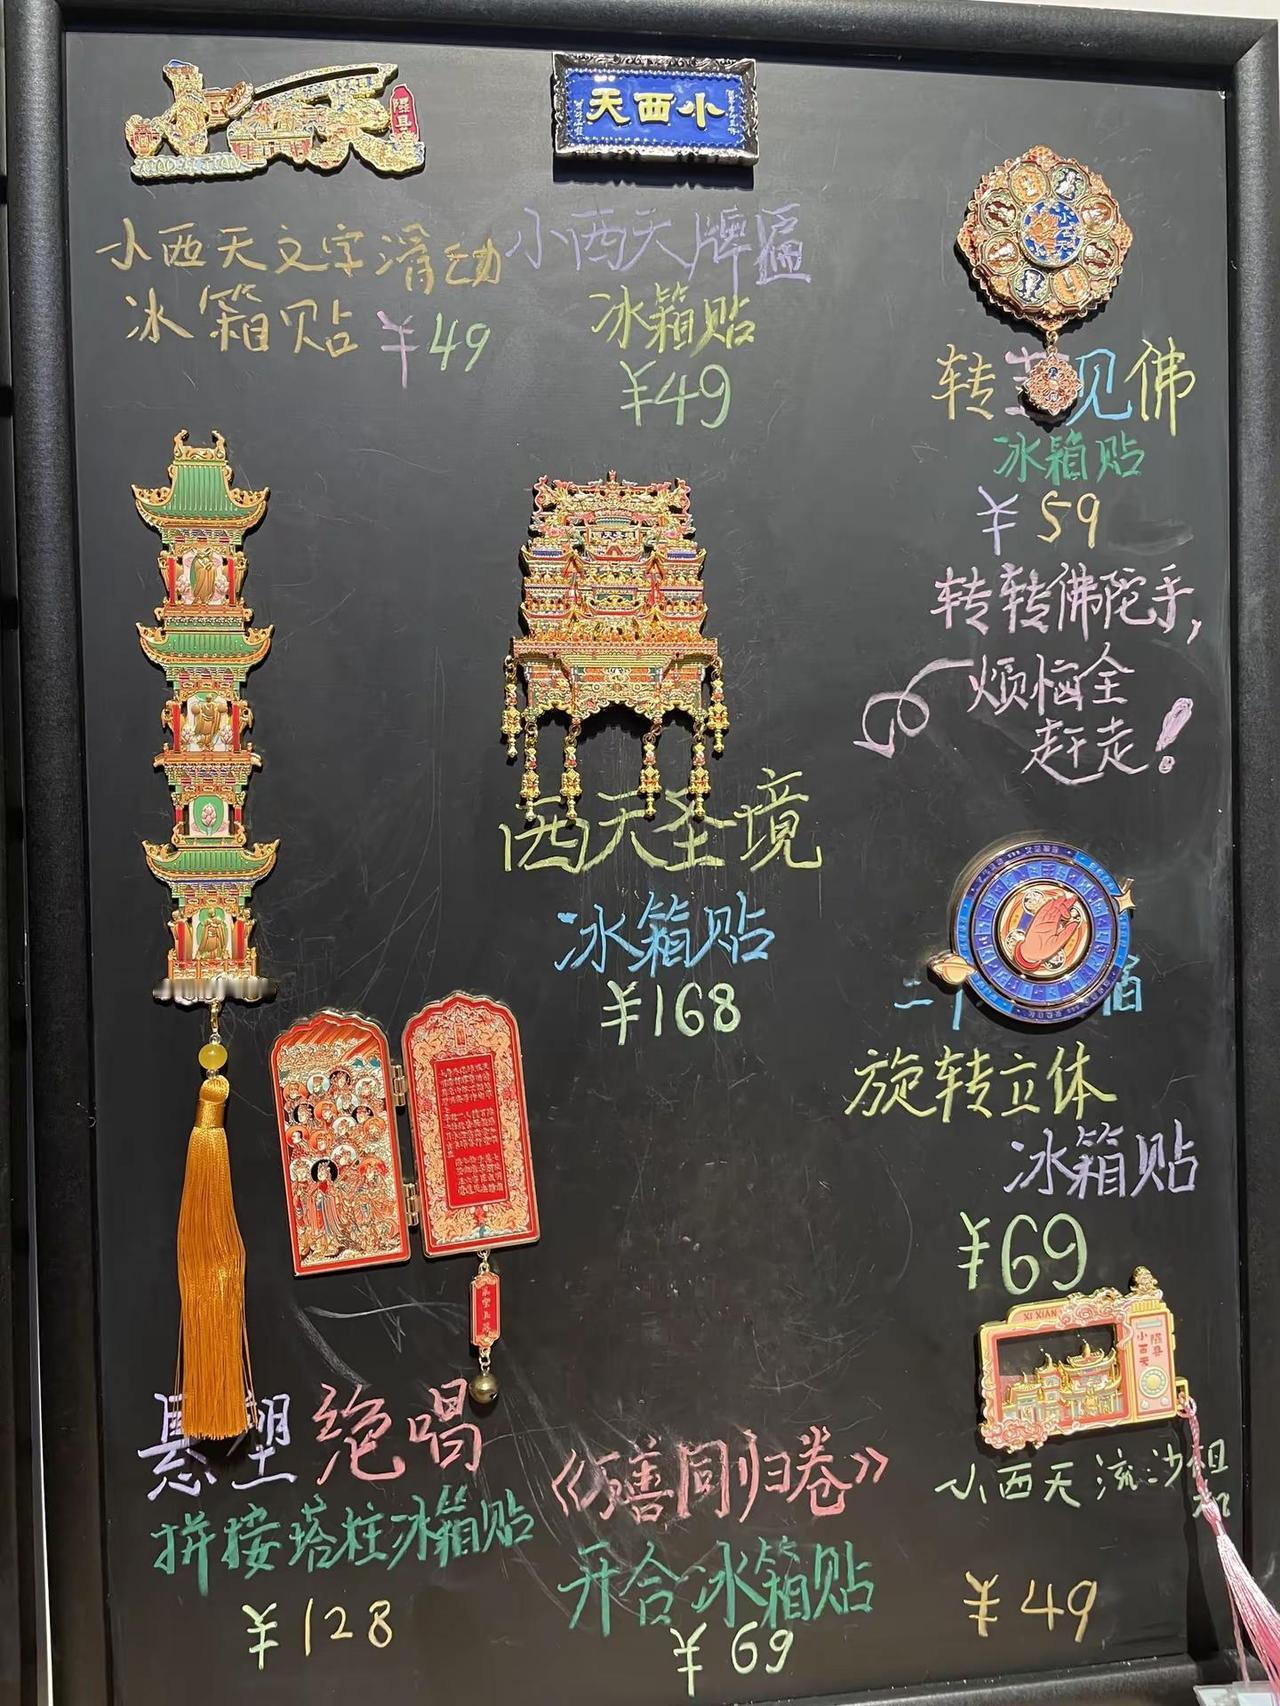 隰县
XIAOXITIAN
小西天
小西天文字滑动
冰箱贴 ¥49
小西天牌匾
冰箱贴
¥49
转 见佛
冰箱贴
¥59
转转佛陀手,
烦恼全
赶走!
西天圣境
冰箱贴
¥168
二十 宿
旋转立体
冰箱贴
¥69
XI XIAN
隰县
小西天
悬塑绝唱
拼接塔柱冰箱贴
¥128
《万善同归卷》
开合冰箱贴
¥69
小西天流沙
¥49